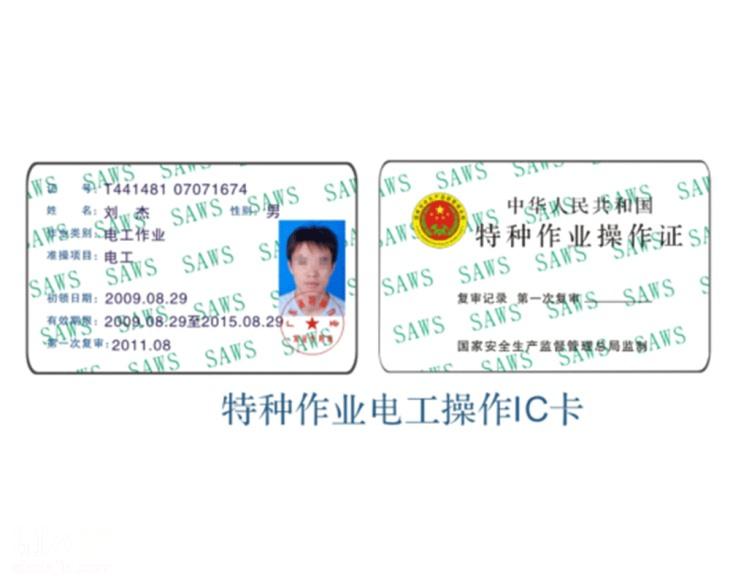 证 号: T441481 07071674
姓 名: 刘 杰 性别: 男
作业类别: 电工作业
准操项目: 电工
初领日期: 2009.08.29
有效期限: 2009.08.29至2015.08.29
第一次复审: 2011.08
SAWS
中华人民共和国
特种作业操作证
复审记录 第一次复审
国家安全生产监督管理总局监制
SAWS
特种作业电工操作IC卡